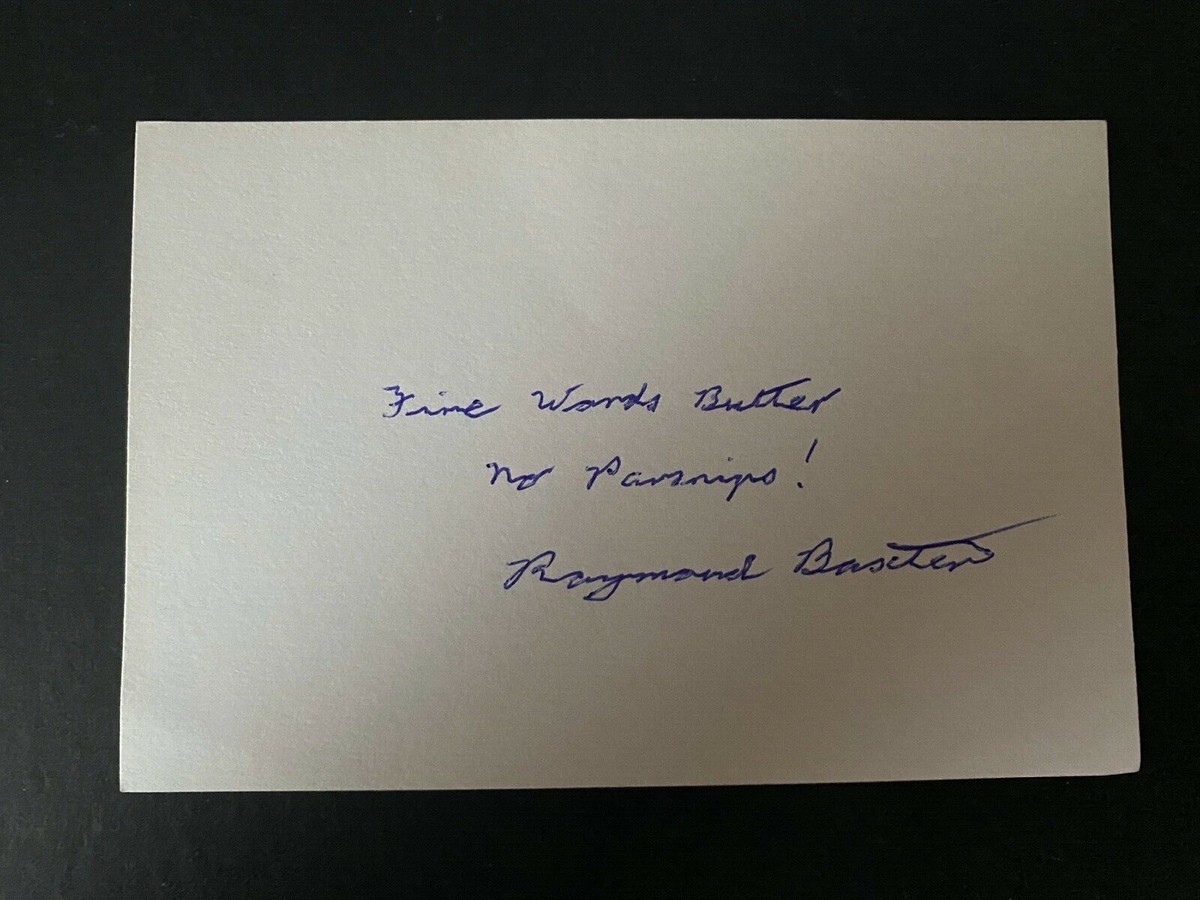 Fine Words Butter
No Parsnips!
Raymond Baxter